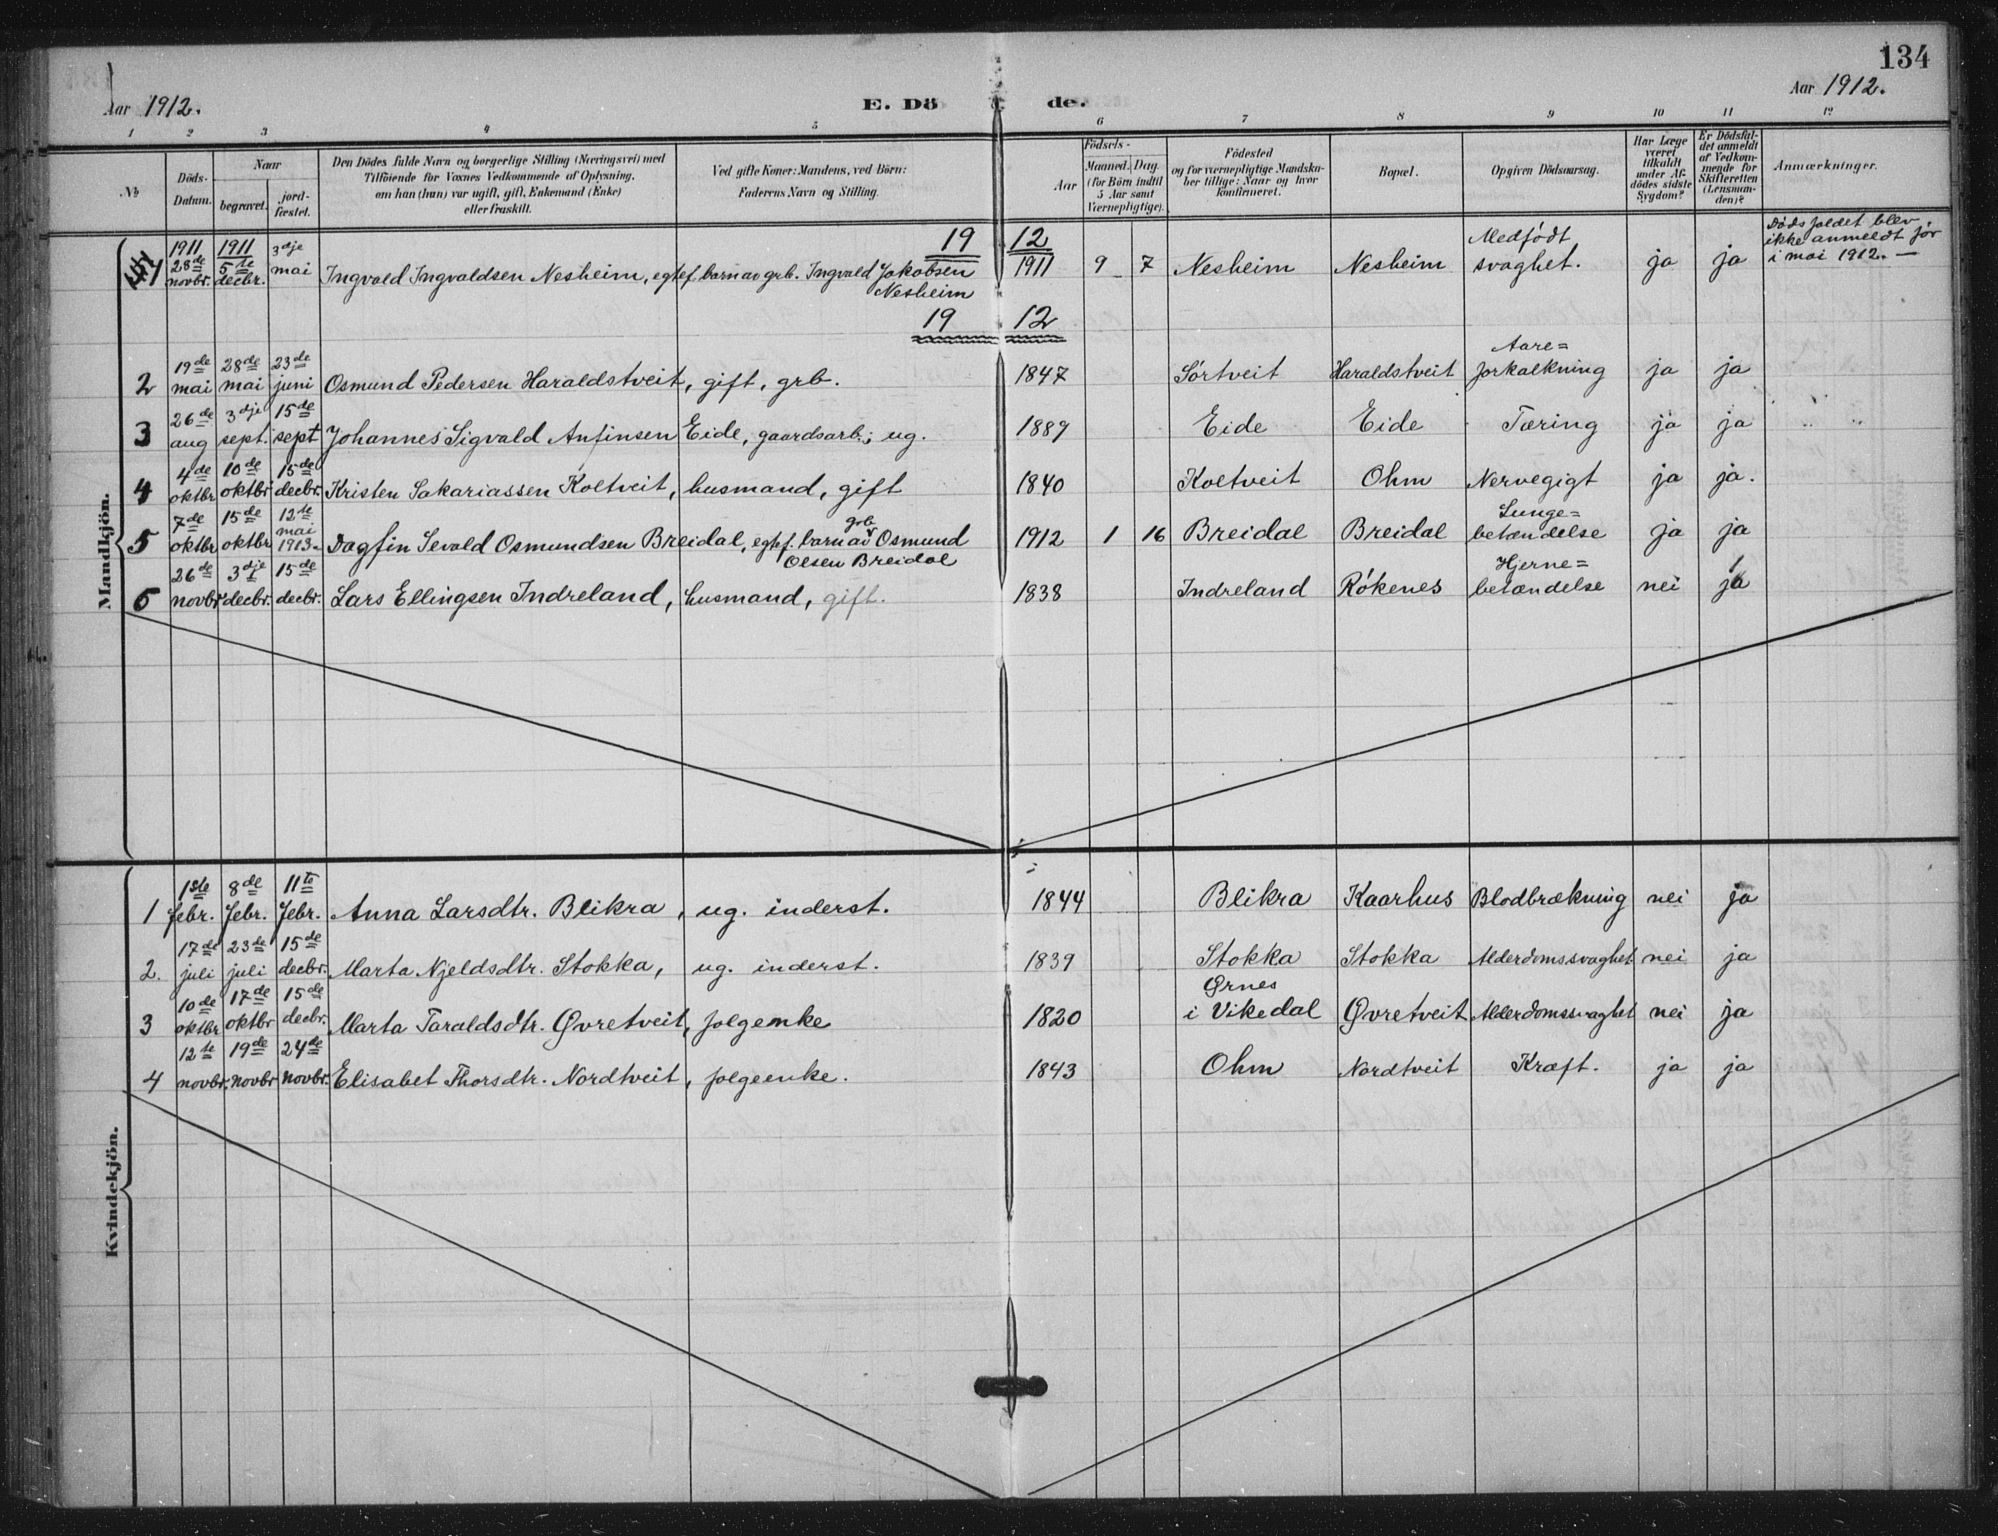 134
Aar 1912. E. Dö de. Aar 1912.
1 2 3 4 5 6 7 8 9 10 11 12
No
Döds-Datum.
Naar
begravet.
jord-fæstet.
Den Dödes fulde Navn og borgerlige Stilling (Næringsvei) med
Tilföiende for Voxnes Vedkommende af Oplysning,
om han (hun) var ugift, gift, Enkemand (Enke)
eller fraskilt.
Ved gifte Koner: Mandens, ved Börn:
Faderens Navn og Stilling.
Födsels-
Aar
Maaned. Dag.
(for Börn indtil
5 Aar samt
Værnepligtige).
Födested
og for værnepligtige Mandska-
ber tillige: Naar og hvor
konfirmeret.
Bopæl.
Opgiven Dödsaarsag.
Har Læge
været
tilkaldt
under Af-
dödes sidste
Sygdom?
Er Dödsfal-
det anmeldt
af Vedkom-
mende for
Skifteretten
(Lensman-
den)?
Anmærkninger.
Mandkjön.
19 12
1911 28de novbr. 1911 5te decbr. 3dje mai Ingvald Ingvaldsen Nesheim, egtef. barn av grb. Ingvald Jakobsen Nesheim 1911 9 7 Nesheim Nesheim Medfødt svaghet. ja ja Dødsfaldet blev ikke anmeldt før i mai 1912. —
19 12
2 19de mai 28de mai 23de juni Osmund Pedersen Haraldstveit, gift, grb. 1847 Sørtveit Haraldstveit Aare= forkalkning ja ja
3 26de aug 3dje sept. 15de sept Johannes Sigvald Anfinsen Eide, gaardsarb.; ug. 1889 Eide Eide Tæring ja ja
4 4de oktbr 10de oktbr 15de decbr. Kristen Sakariassen Koltveit, husmand, gift 1840 Koltveit Ohm Nervegigt ja ja.
5 7de oktbr 15de oktbr 12te mai 1913. Dagfin Sevald Osmundsen Breidal, egtef. barn av grb. Osmund Olsen Breidal 1912 1 16 Breidal Breidal Lunge= betændelse ja ja
6 26de novbr 3dje decbr. 15de decbr. Lars Ellingsen Indreland, husmand, gift. 1838 Indreland Røkenes Hjerne= betændelse nei ja
Kvindekjön.
1 1ste febr. 8de febr. 11te febr. Anna Larsdtr. Blikra, ug. inderst. 1844 Blikra Kaarhus Blodbrækning nei ja
2. 17de juli 23de juli 15de decbr. Marta Njeldsdtr. Stokka, ug. inderst. 1839 Stokka Stokka Alderdomssvaghet nei ja
3 10de oktbr 17de oktbr 15de decbr. Marta Taraldsdtr. Øvretveit, folgeenke 1820 Ørnes i Vikedal Øvretveit Alderdomssvaghet nei ja
4 12te novbr. 19de novbr 24de novbr. Elisabet Thorsdtr. Nordtveit, folgeenke. 1843 Ohm Nordtveit Kræft. ja ja